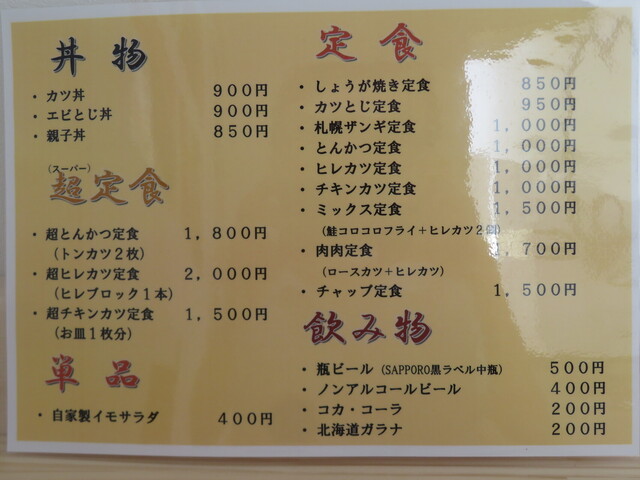 丼物
・カツ丼 900円
・エビとじ丼 900円
・親子丼 850円
(スーパー)
超定食
・超とんかつ定食 1,800円
(トンカツ2枚)
・超ヒレカツ定食 2,000円
(ヒレブロック1本)
・超チキンカツ定食 1,500円
(お皿1枚分)
単品
・自家製イモサラダ 400円
定食
・しょうが焼き定食 850円
・カツとじ定食 950円
・札幌ザンギ定食 1,000円
・とんかつ定食 1,000円
・ヒレカツ定食 1,000円
・チキンカツ定食 1,000円
・ミックス定食 1,500円
(鮭コロコロフライ+ヒレカツ2個)
・肉肉定食 1,700円
(ロースカツ+ヒレカツ)
・チャップ定食 1,500円
飲み物
・瓶ビール(SAPPORO黒ラベル中瓶) 500円
・ノンアルコールビール 400円
・コカ・コーラ 200円
・北海道ガラナ 200円